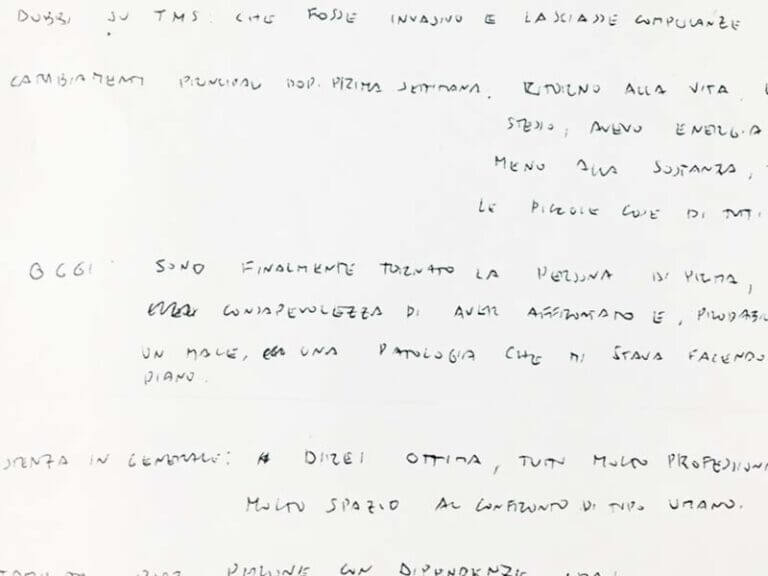 DUBBI SU TMS: CHE FOSSE INVASIVO E LASCIASSE COMPLICANZE
CAMBIAMENTI PRINCIPALI DOPO PRIMA SETTIMANA. RITORNO ALLA VITA.
STESSO, AVEVO ENERGIA
MENO ALLA SOSTANZA,
LE PICCOLE COSE DI TUTTI
OGGI: SONO FINALMENTE TORNATO LA PERSONA DI PRIMA,
CONSAPEVOLEZZA DI AVER AFFRONTATO E, PROBABIL
UN MALE, UNA PATOLOGIA CHE MI STAVA FACENDO
PIANO.
STENZA IN GENERALE: DIREI OTTIMA, TUTTI MOLTO PROFESSIONA
MOLTO SPAZIO AL CONFRONTO DI TIPO UMANO.
PERSONE CON DIPENDENZE